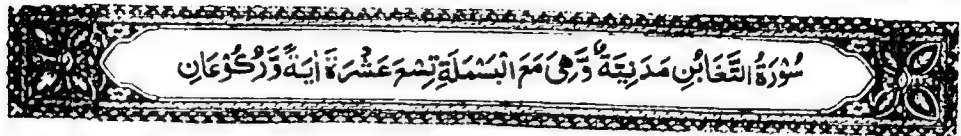 سُوْرَةُ التَّغَابُنِ مَدَنِيَّةٌ وَّهِىَ مَعَ الْبَسْمَلَةِ تِسْعَ عَشْرَةَ اٰيَةً وَّرُكُوْعَانِ